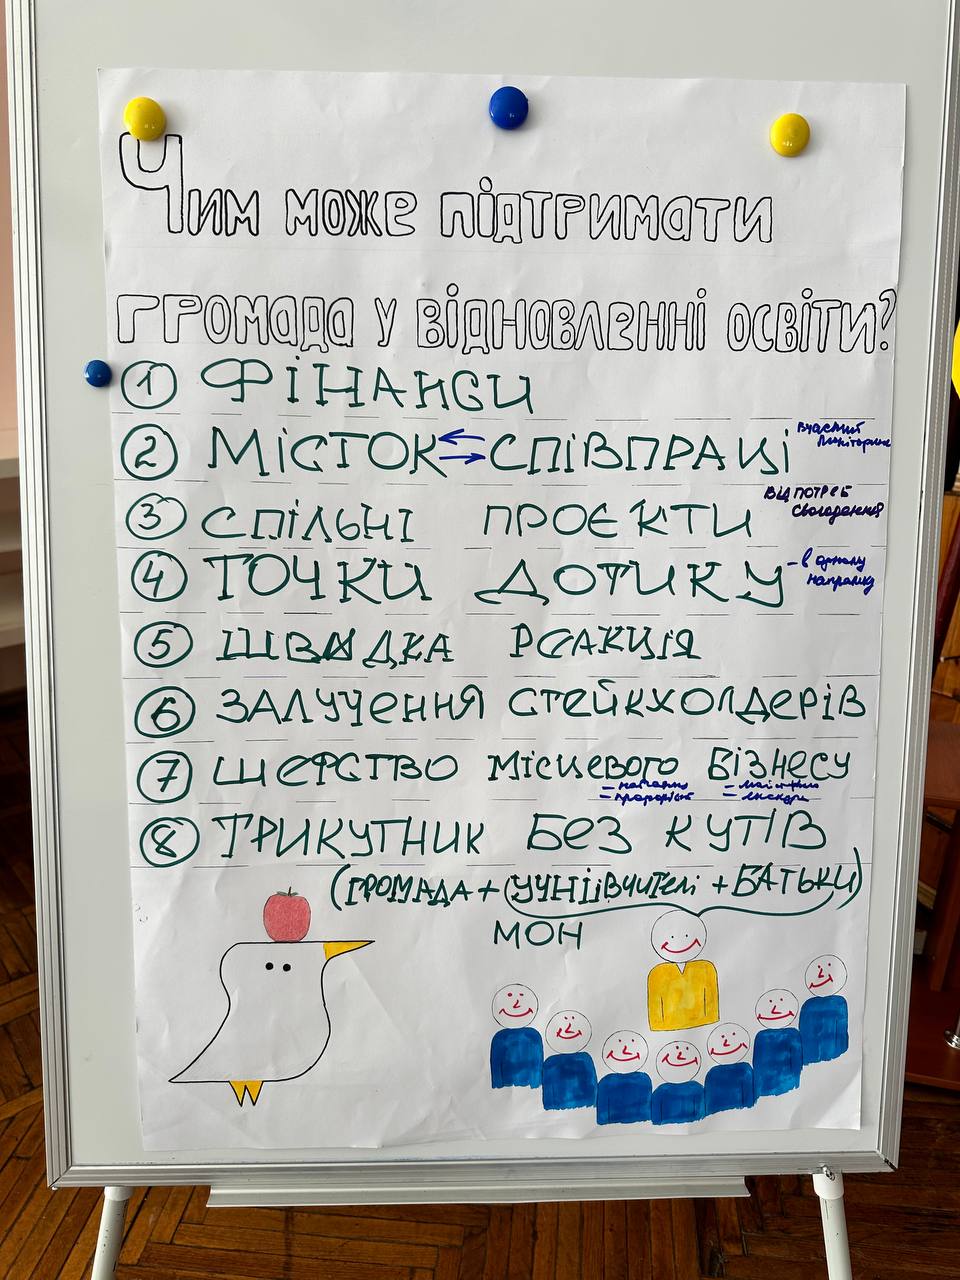 Чим може підтримати
громада у відновленні освіти?
1 ФІНАНСИ
2 МІСТОК СПІВПРАЦІ
3 СПІЛЬНІ ПРОЄКТИ
від потреб
сьогодення
4 ТОЧКИ ДОТИКУ
- в одному
напрямку
5 ШВИДКА РЕАКЦІЯ
6 ЗАЛУЧЕННЯ СТЕЙКХОЛДЕРІВ
7 ШЕФСТВО МІСЦЕВОГО БІЗНЕСУ
8 ТРИКУТНИК БЕЗ КУТІВ
(ГРОМАДА + (УЧНІ І ВЧИТЕЛІ + БАТЬКИ)
МОН